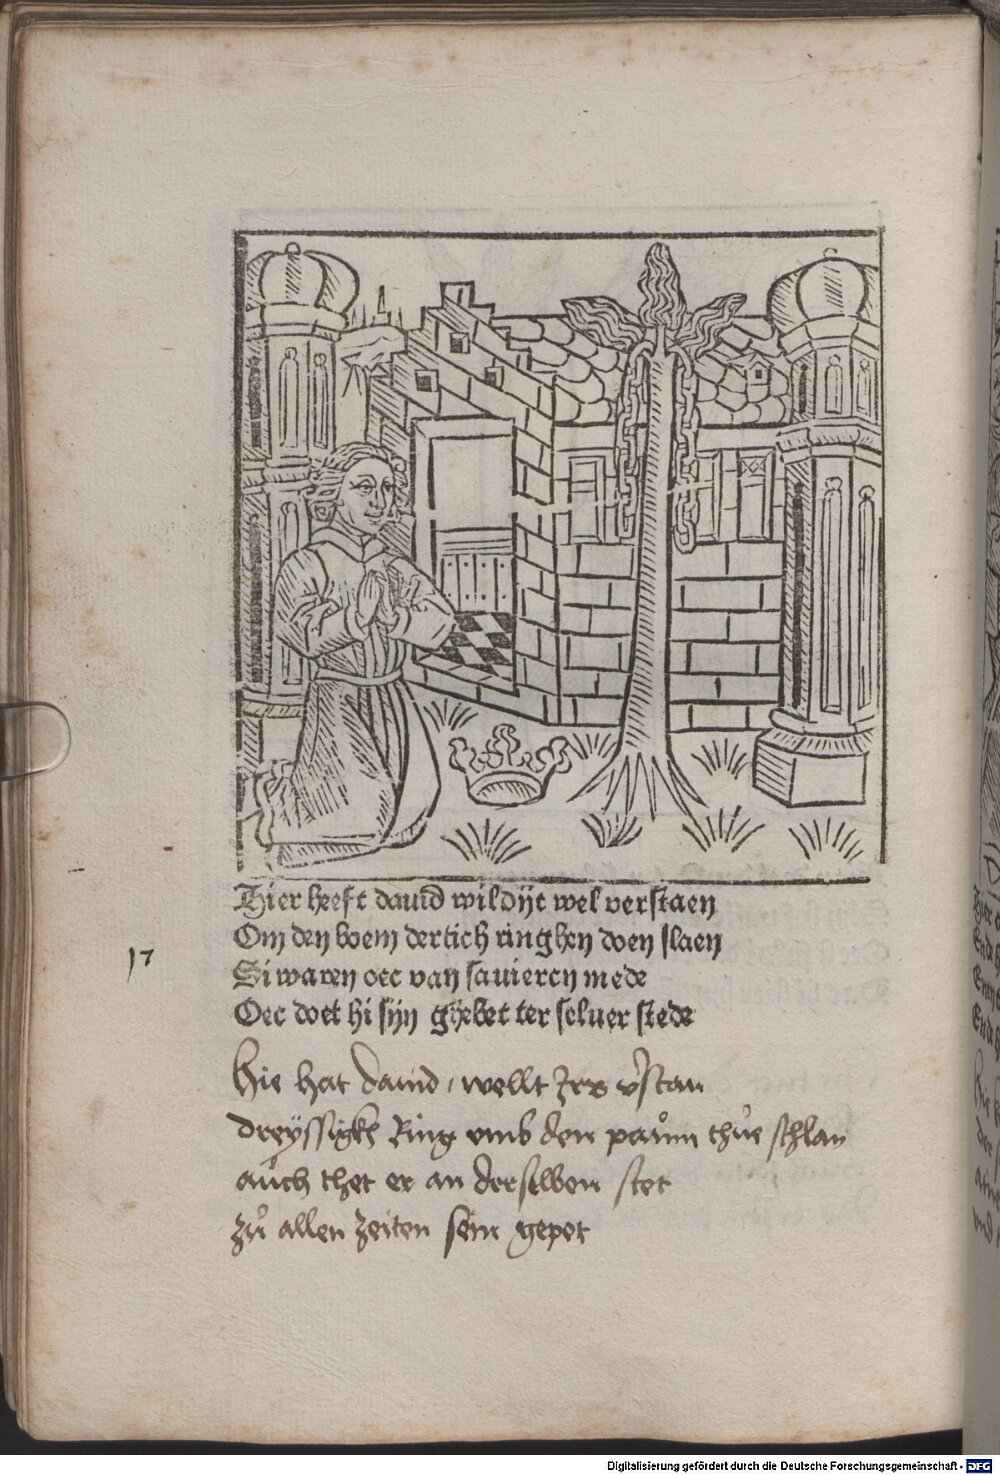 Hier heeft dauid wildijt wel verstaen
Om den boem dertich ringhen doen slaen
Si waren oec van sauieren mede
Oec doet hi sijn ghebet ter seluer stede
17
Hie hat dauid, wellt Irs v̓stan
dreÿssigkh Ring vmb den paům thůe schlan
aůch thet er an derselben stet
zů allen zeiten sein gepet
Digitalisierung gefördert durch die Deutsche Forschungsgemeinschaft - DFG